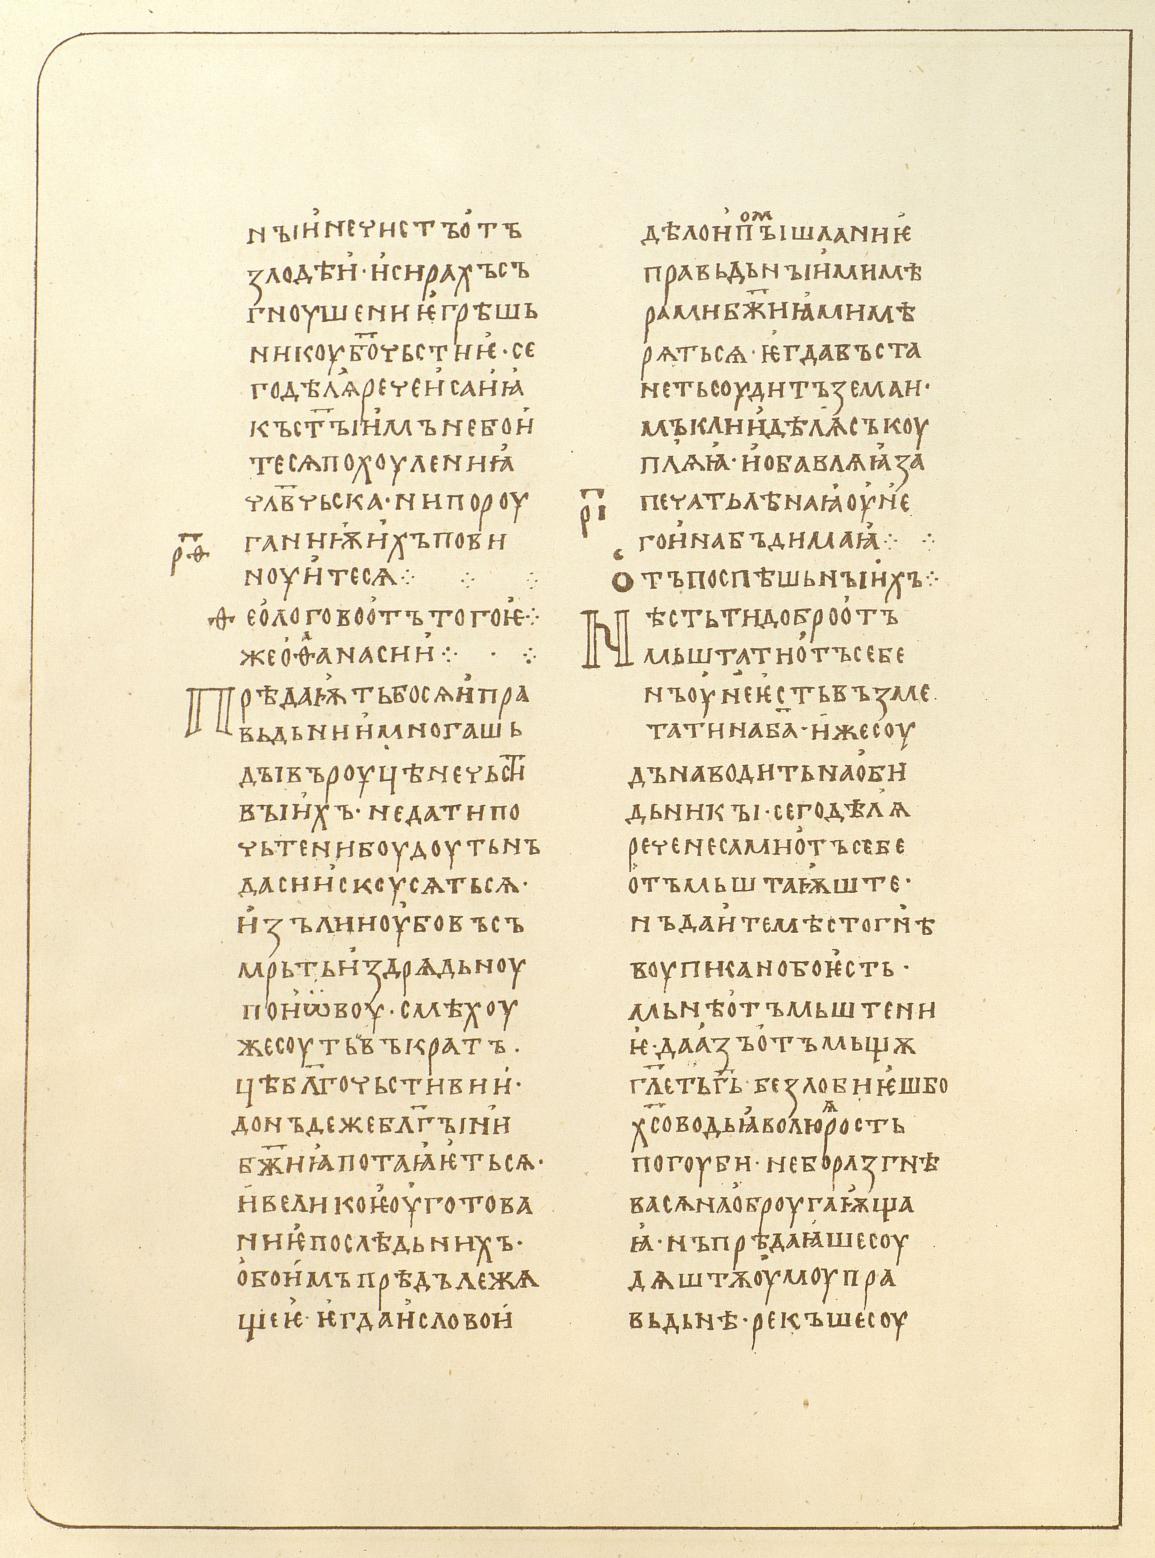 нꙑи нечистъ отъ
злодѣи · и сирахъ съ
гноушениѥ грѣшь
никоу бо҃чьстиѥ · се
го дѣлѧ рече исаиꙗ
къ ст҃ꙑимъ не бои
те сѧ похоулениꙗ
члв҃чьска · ни пороу
ганиѭ ихъ пови
ноуите сѧ ⁘ ⁘ ⁘
р҃ѳ
ѳеологово отъ тогоѥ ⁘
же оѳанасии ⁘ · ⁘
Прѣдаѭть бо сѧ и пра
вьдьнии многашь
дꙑ въ роуцѣ нечьст҃и
вꙑихъ · не да ти по
чьтени боудоуть нъ
да си искоусѧть сѧ ·
и зъли ноу бо въ съ
мрьть издрѧдьноу
по иѡвоу · смѣхоу
же соуть въкратъ ·
цѣ бл҃гочьстивии ·
доньдеже бл҃гꙑни
бж҃иꙗ потаꙗѥть сѧ ·
и великоѥ оуготова
ниѥ послѣдьнихъ ·
обоимъ прѣдълежѧ
щеѥ · ѥгда и слово и
дѣло и помꙑшланиѥ
правьдьнꙑими мѣ
рами бж҃иꙗми мѣ
рѧть сѧ · ѥгда въста
неть соудитъ земли ·
мъкли и дѣлѧ съкоу
плѧꙗ · и обавлꙗꙗ за
печатьлѣнаꙗ оу не
го и набъдимаꙗ ⁘ ⁘
р҃і
отъ поспѣшьнꙑихъ ⁘
Нѣсть ти добро отъ
мьштати отъ себе
нъ оунеѥ сть възме
тати на ба҃ · иже соу
дъ наводить на оби
дьникꙑ · сего дѣлѧ
рече не сами отъ себе
отъмьштаѭште ·
нъ даите мѣсто гнѣ
воу писано бо ѥсть ·
мьнѣ отъмьштени
ѥ · да азъ отъмьщѫ
гл҃еть г҃ь · безлобиѥ шбо
хс҃о во дьꙗволю рость
погоуби · не бо разгнѣ
ва сѧ на оброугаѭща
ꙗ · нъ прѣдаꙗше соу
дѧштѫоумоу пра
вьдьнѣ · рекъше соу